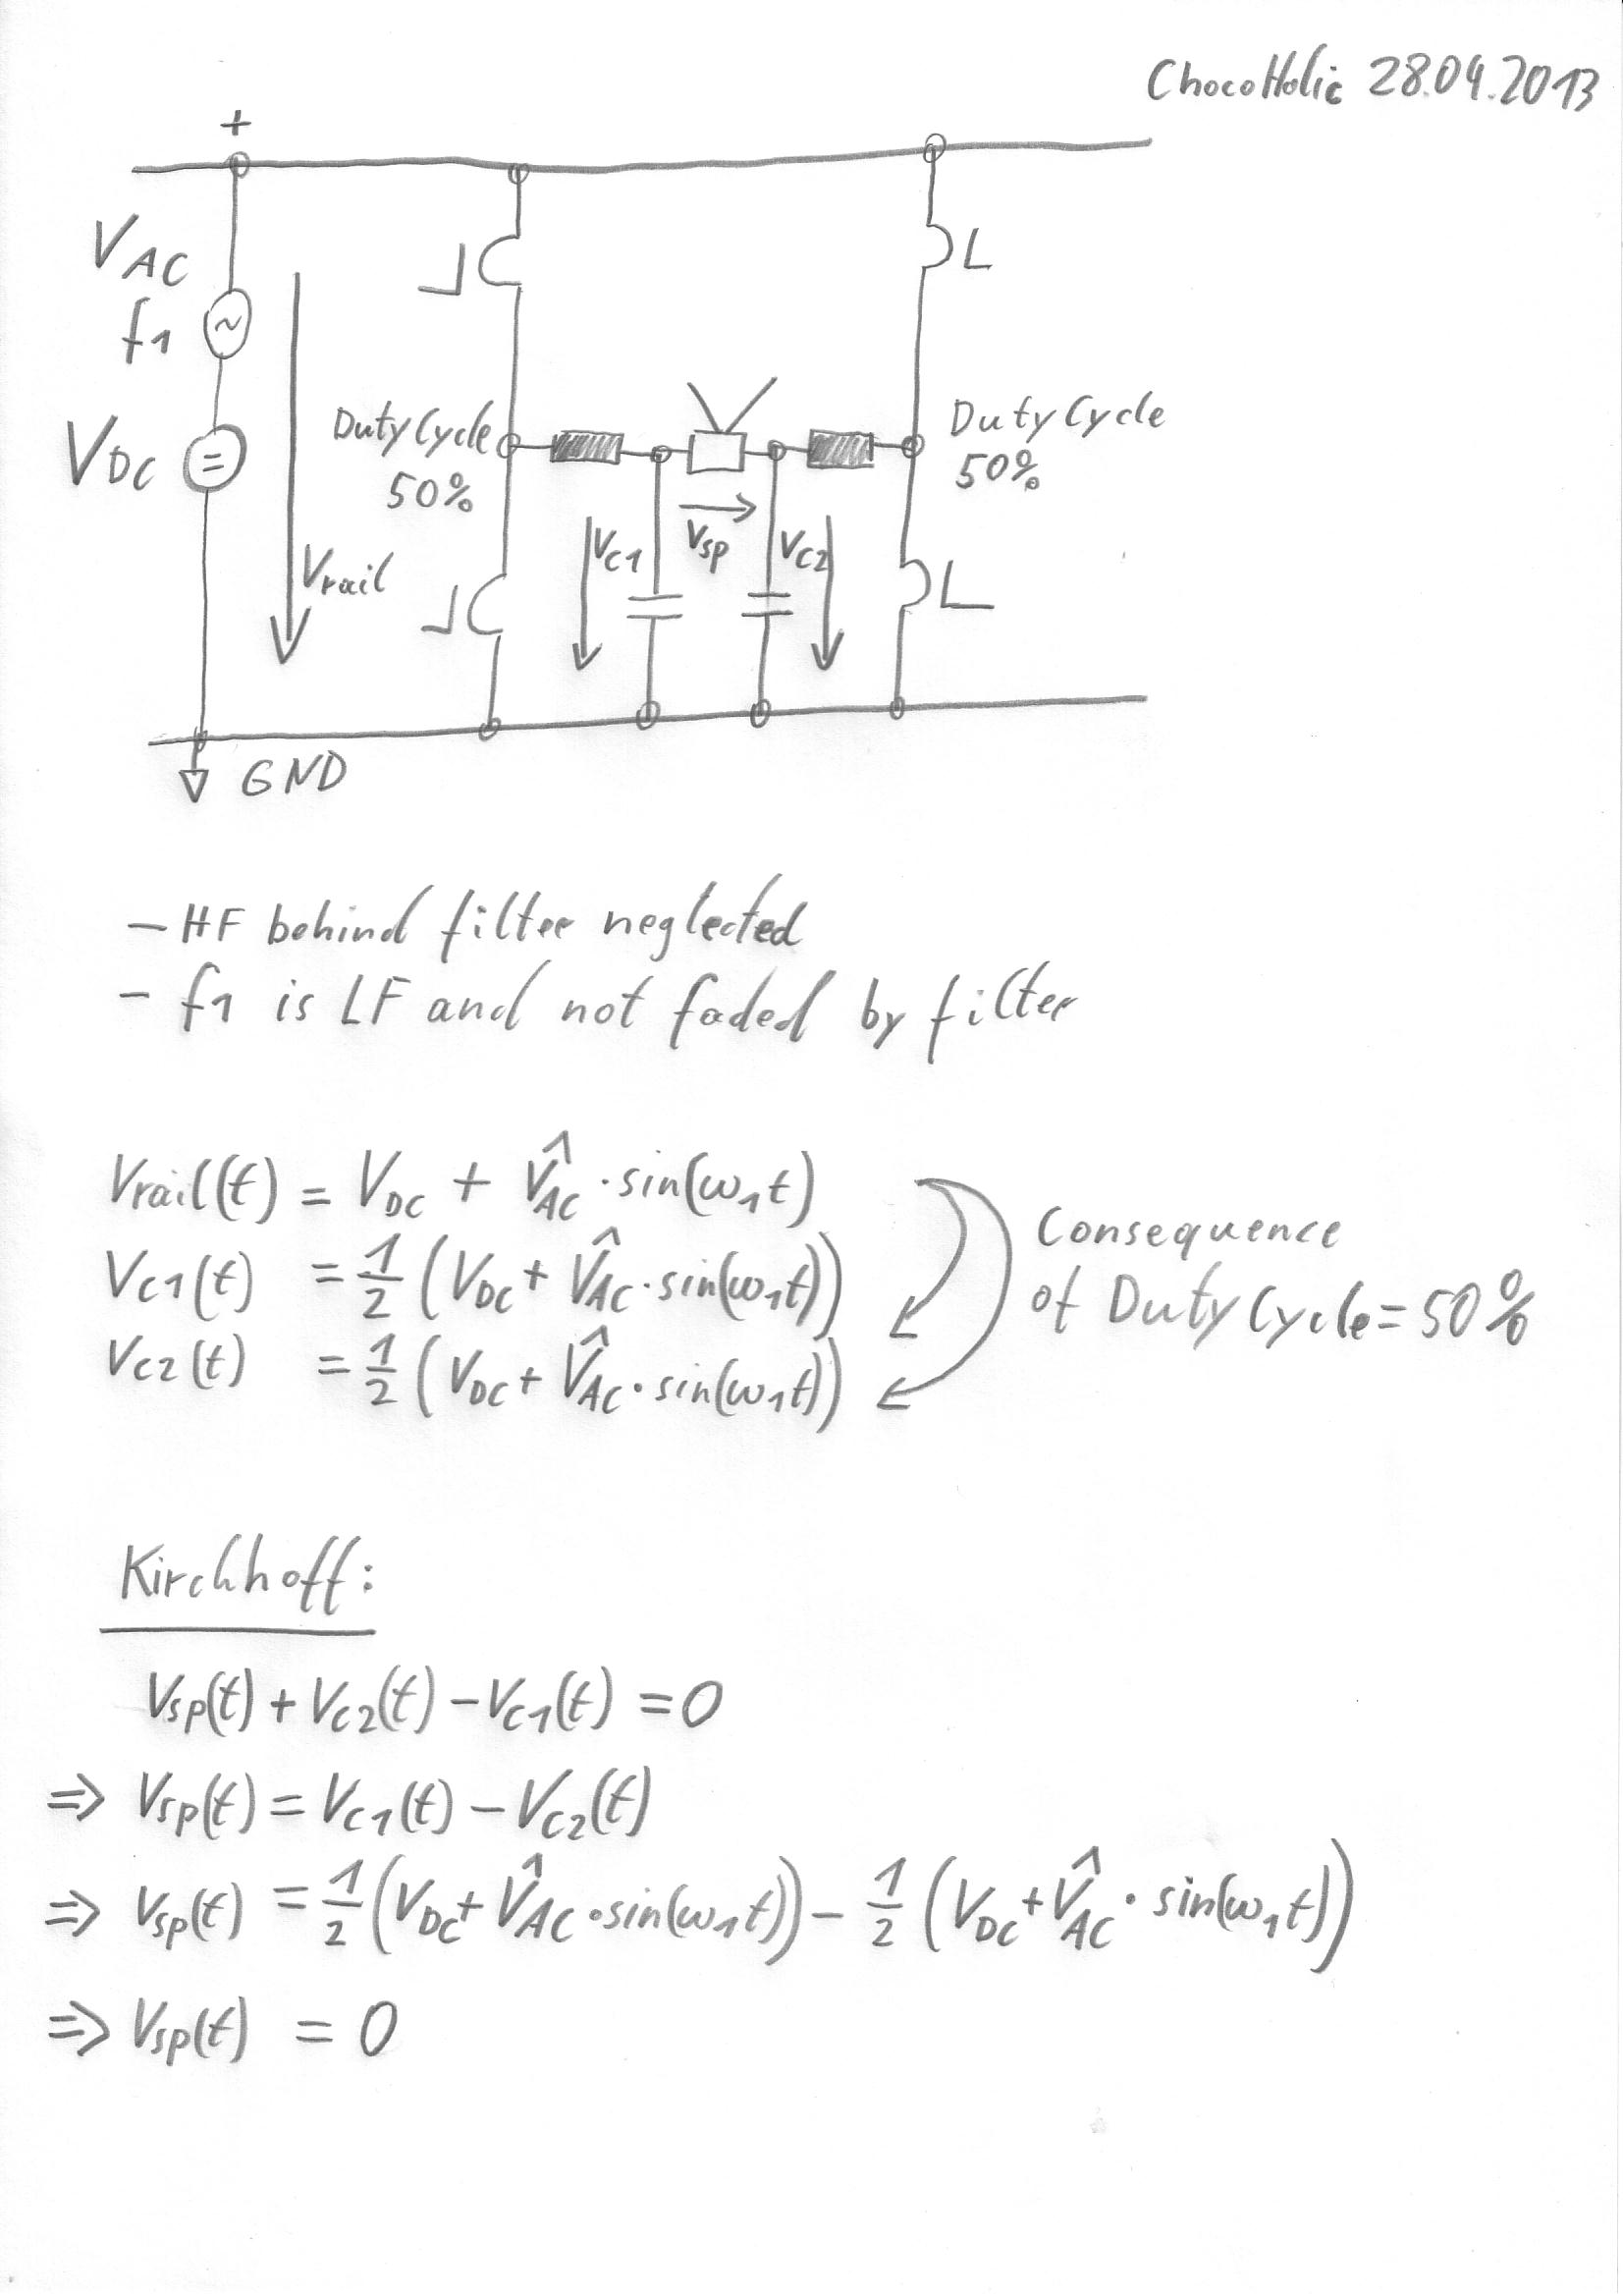 ChocoHolic 28.04.2013
+
VAC
f1
VDC
Vrail
Duty Cycle
50%
Duty Cycle
50%
VC1
Vsp
VC2
GND
– HF behind filter neglected
– f1 is LF and not faded by filter
Vrail(t) = VDC + V̂AC · sin(ω1t)
VC1(t) = 1/2 (VDC + V̂AC · sin(ω1t))
VC2(t) = 1/2 (VDC + V̂AC · sin(ω1t))
Consequence
of Duty Cycle = 50%
Kirchhoff:
Vsp(t) + VC2(t) – VC1(t) = 0
⇒ Vsp(t) = VC1(t) – VC2(t)
⇒ Vsp(t) = 1/2 (VDC + V̂AC · sin(ω1t)) – 1/2 (VDC + V̂AC · sin(ω1t))
⇒ Vsp(t) = 0